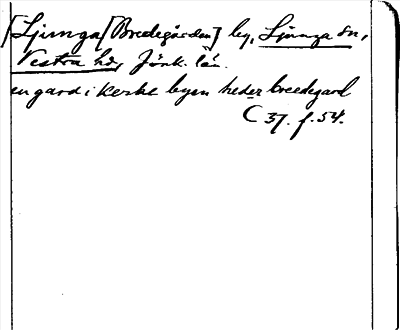 [Ljunga [Bredegården] by, Ljunga sn,
Västra hd, Jönk. län.
en gard i kerke byen heder breedegard
C 37. f. 54.